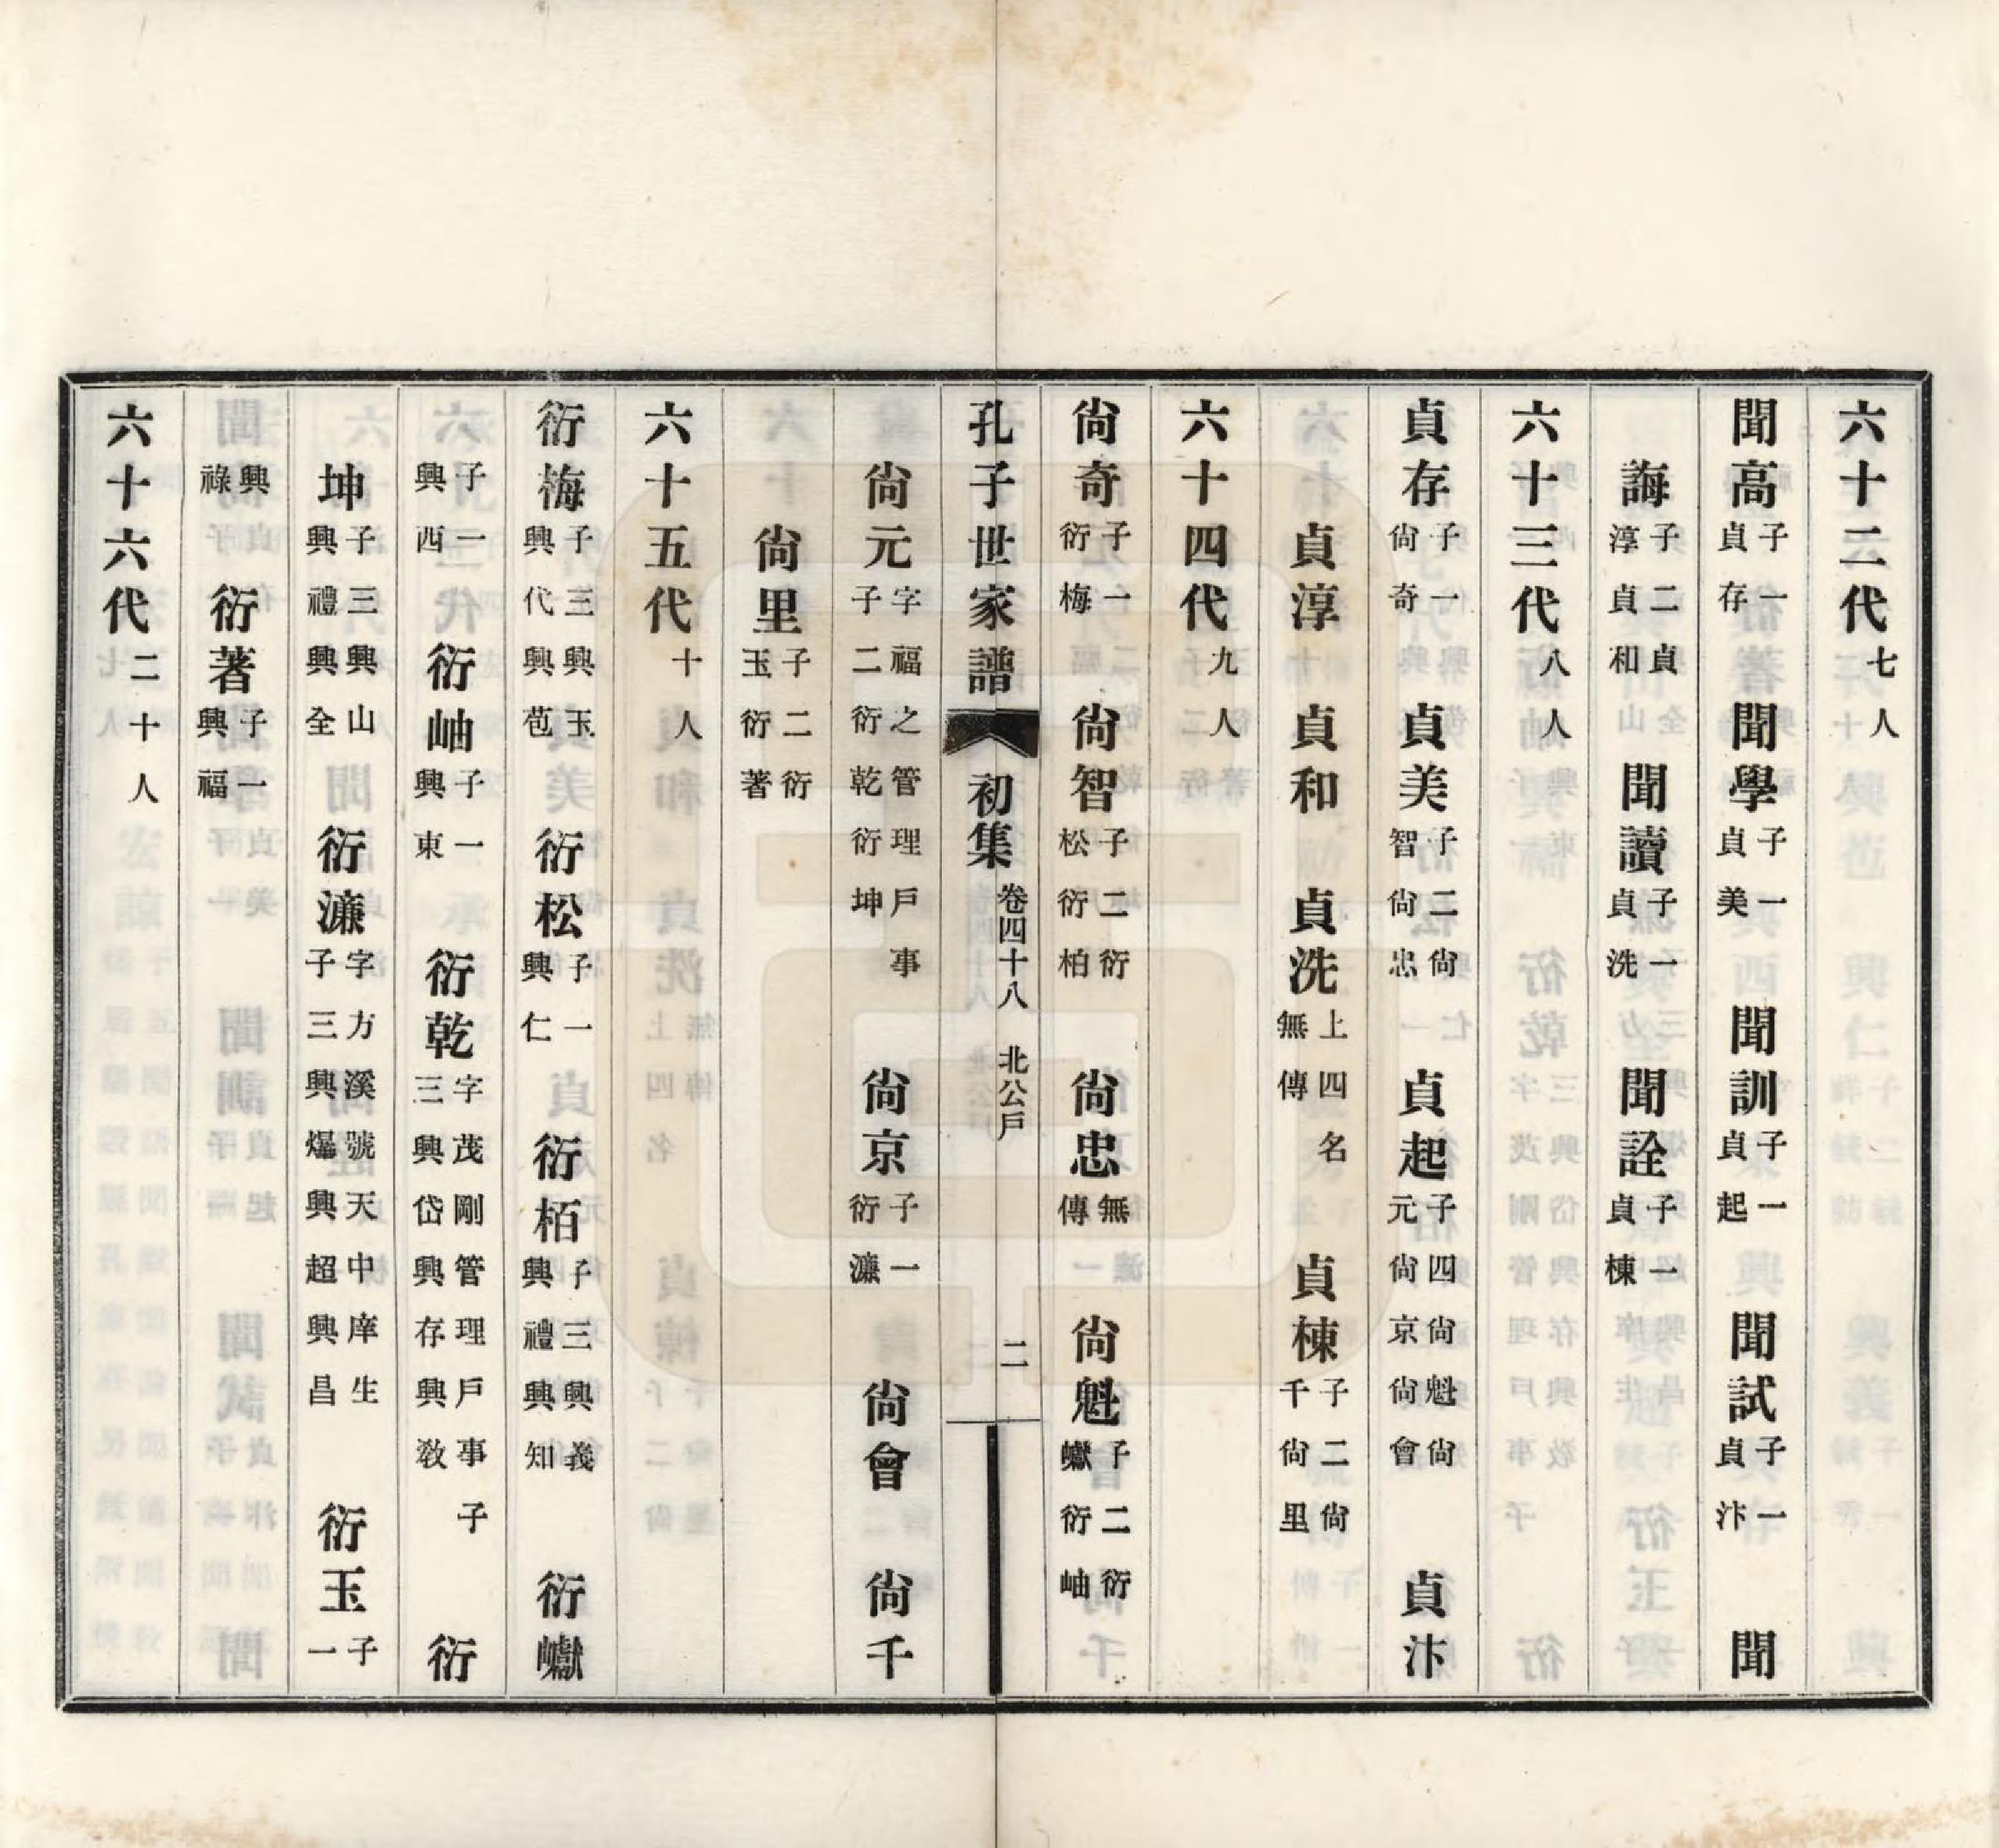 六十二代七人
聞高子一貞存 聞學子一貞美 聞訓子一貞起 聞試子一貞汴 聞
誨子二貞淳貞和 聞讀子一貞洗 聞詮子一貞棟
六十三代八人
貞存子一尙奇 貞美子二尙智尙忠 貞起子四尙魁尙元尙京尙會 貞汴
貞淳 貞和 貞洗上四名無傳 貞棟子二尙千尙里
六十四代九人
尙奇子一衍梅 尙智子二衍松衍柏 尙忠無傳 尙魁子二衍巘衍岫
孔子世家譜 初集 卷四十八 北公戶 二
尙元字福之管理戶事子二衍乾衍坤 尙京子一衍濂 尙會 尙千
尙里子二衍玉衍著
六十五代十人
衍梅子三興玉興代興苞 衍松子一興仁 衍栢子三興義興禮興知 衍巘
子一興西 衍岫子一興東 衍乾字茂剛管理戶事子三興岱興存興敎 衍
坤子三興山興禮興全 衍濂字方溪號天中庠生子三興爆興超興昌 衍玉子一
興祿 衍著子一興福
六十六代二十人